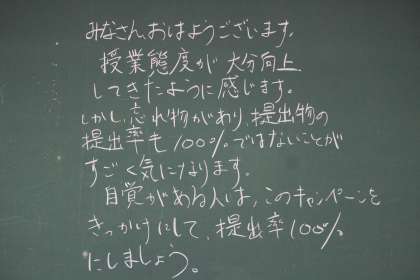 みなさん、おはようございます。
授業態度が大分向上
してきたように感じます。
しかし、忘れ物があり、提出物の
提出率も100%ではないことが
すごく気になります。
自覚がある人は、このキャンペーンを
きっかけにして、提出率100%
にしましょう。